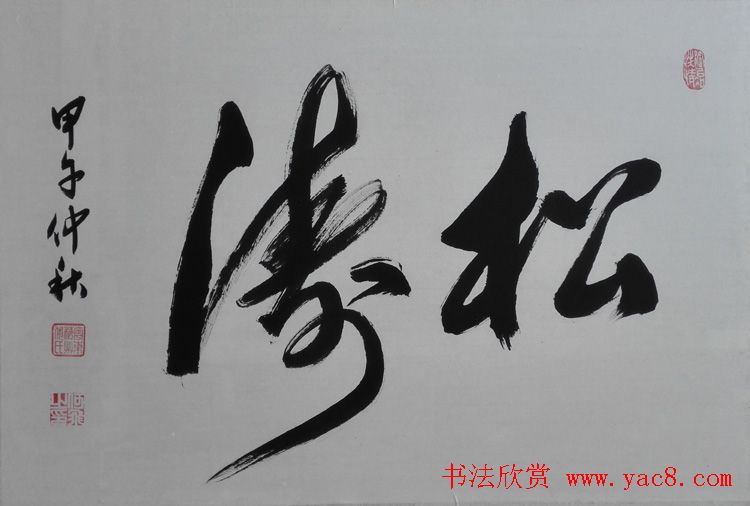 松涛
甲午仲秋
书法欣赏 www.yac8.com